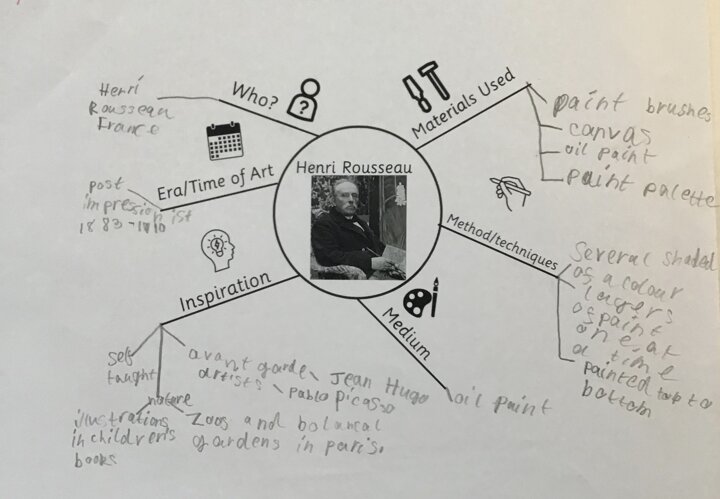 Who?
Henri
Rousseau
France
Era/Time of Art
post
impressionist
1883-1910
Inspiration
self
taught
avant garde
artists
Jean Hugo
Pablo picasso
nature
Zoos and botanical
gardens in paris.
illustrations
in children's
books
Henri Rousseau
Materials Used
paint brushes
canvas
oil paint
paint palette
Method/techniques
Several shaded
of a colour
layers
of paint
one at
a time
painted top to
bottom
Medium
oil paint